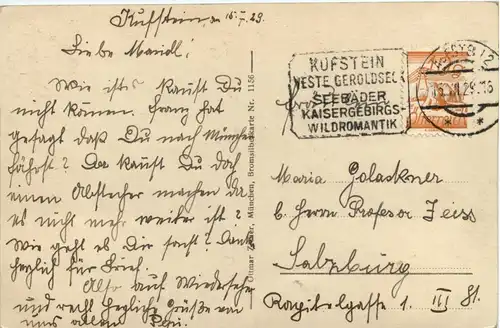 Kufstein, am 15./I. 29.
Liebe Mariedl!
Wie ist es kannst Du
nicht können. Franz hat
gesagt daß Du nach München
fährst? Da kannst Du doch
einen Abstecher machen da
es nicht mehr weiter ist?
Wie geht es Dir sonst? Dank
herzlich für Brief.
Also auf Wiedersehen
und recht herzliche Grüße von
uns allen Pepi.
Ottmar Zieher, München, Bromsilberkarte Nr. 1156
KUFSTEIN
VESTE GEROLDSECK
SEEBÄDER
KAISERGEBIRGS-
WILDROMANTIK
29.16
Maria
b. Herrn Professor Zeiss
Salzburg
Kapitelgasse 1. III St.